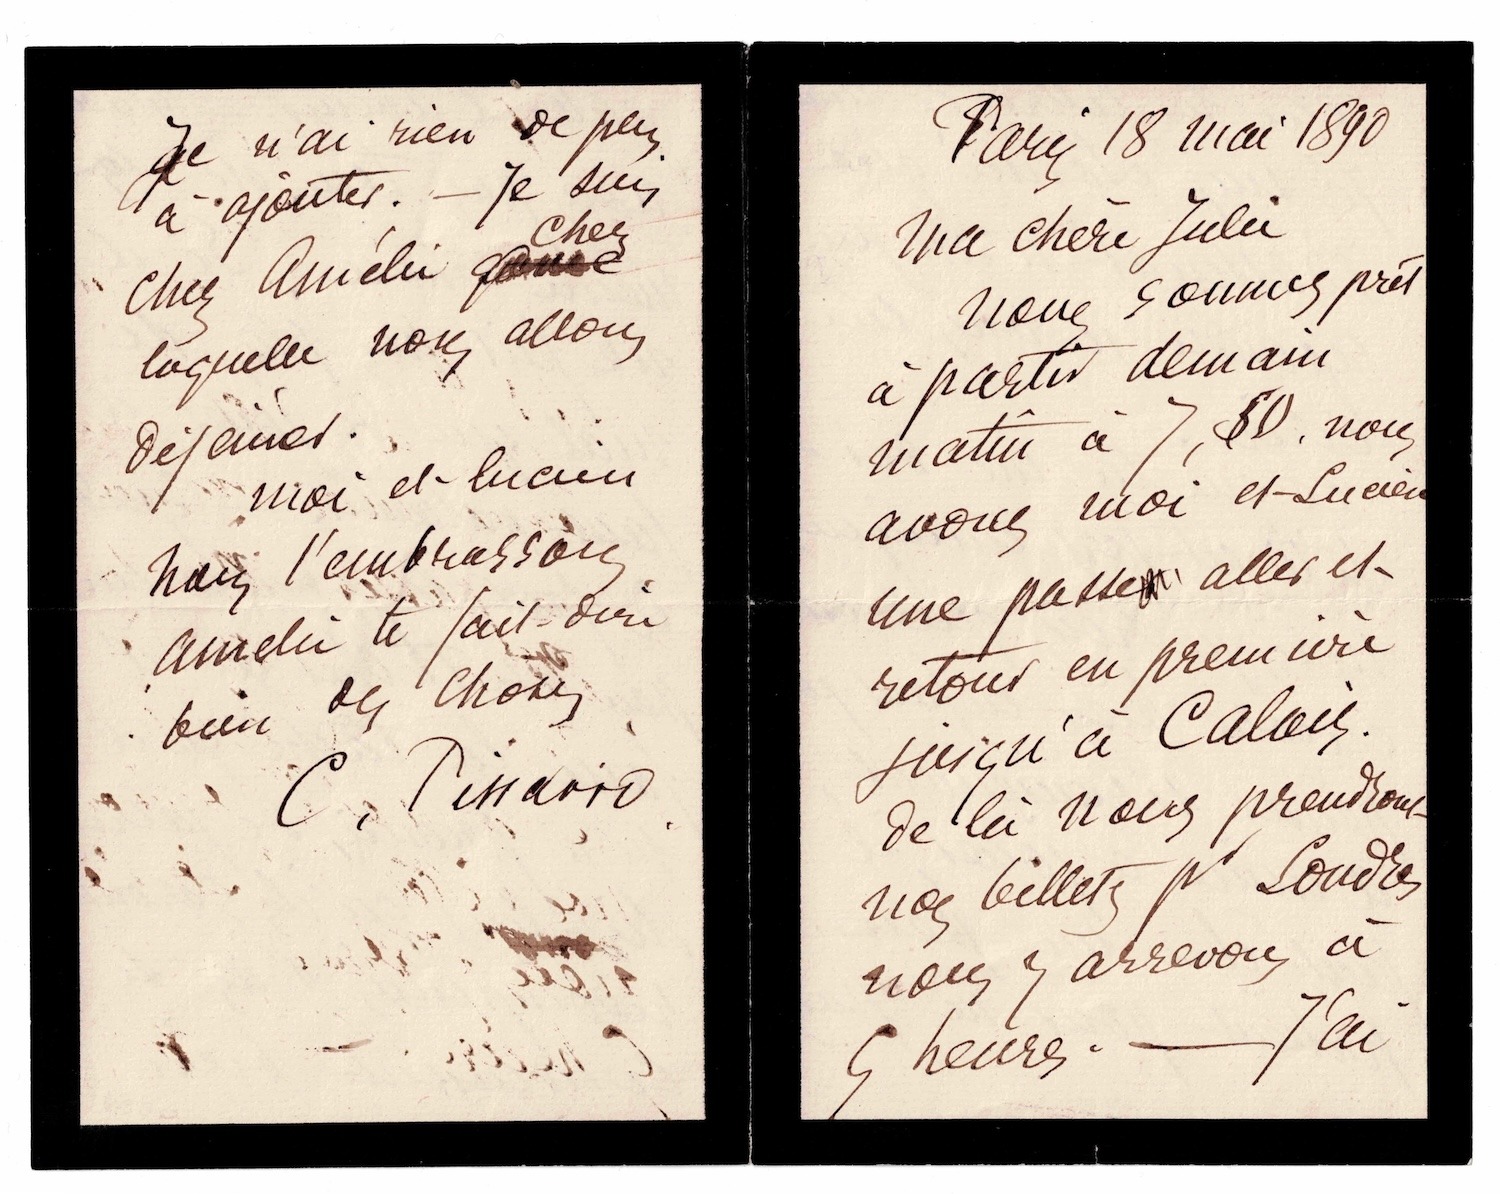 Paris 18 mai 1890
Ma chère Julie
nous sommes prêt
à partir demain
matin à 7,50. nous
avons moi et Lucien
une passe aller et
retour en première
jusqu'à Calais.
de là nous prendrons
nos billets pr Londres
nous y arrivons à
5 heures. — J'ai
Je n'ai rien de plus
à ajouter. — Je suis
chez
chez Amélie
laquelle nous allons
déjeuner.
moi et Lucien
nous t'embrassons
Amélie te fait dire
bien des choses
C. Pissarro